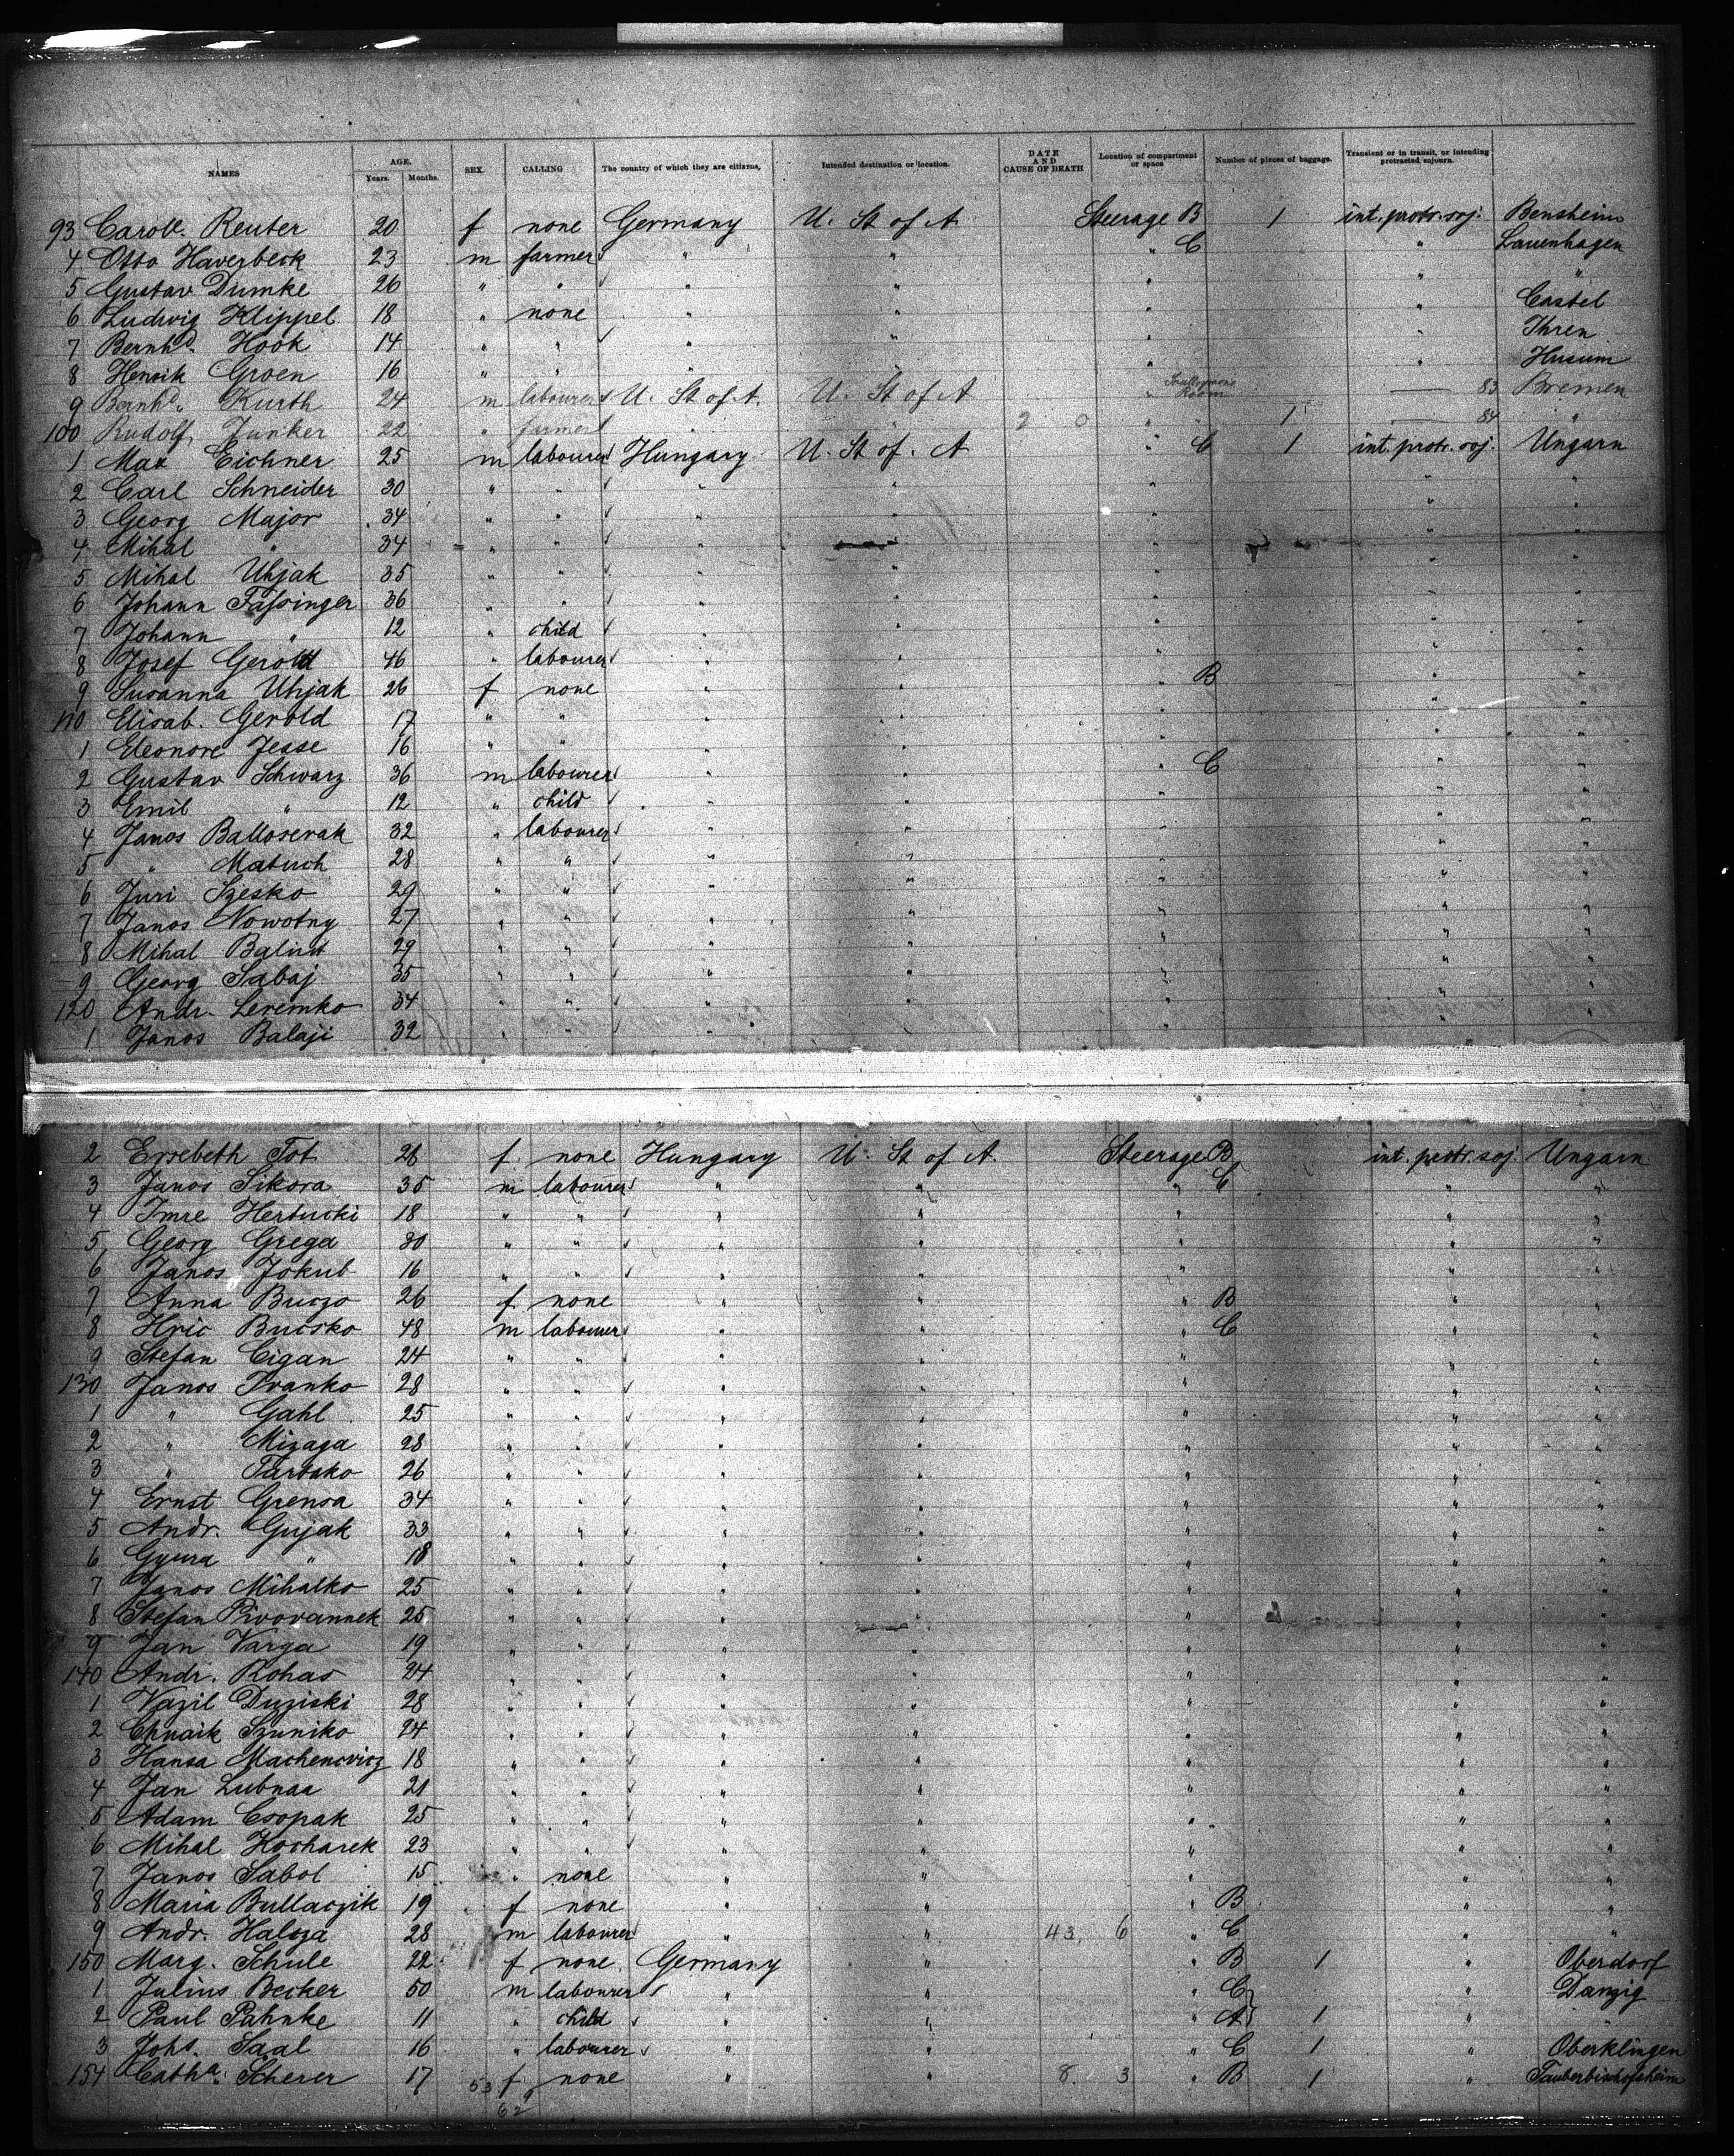 NAMES AGE. Years. Months. SEX. CALLING The country of which they are citizens, Intended destination or location. DATE AND CAUSE OF DEATH Location of compartment or space Number of pieces of baggage. Transient or in transit, or intending protracted sojourn.
93 Carole. Reuter 20 f none Germany U. St of A Steerage B 1 int. protr. soj. Bensheim
4 Otto Haverbeck 23 m farmer " " " C " Lauenhagen
5 Gustav Dumke 26 " " " " " " "
6 Ludwig Klippel 18 " none " " " " Castel
7 Bernhd. Hook 14 " " " " " " Ihren
8 Henrik Groen 16 " " " " " " Husum
9 Bernhd. Kurth 24 m labourer U. St of A. U. St of A " Room — 83 Bremen
100 Rudolf Junker 22 " farmer " " 2 0 " " 1 — 84 "
1 Max Eichner 25 m labourer Hungary U. St of. A " C 1 int. protr. soj. Ungarn
2 Carl Schneider 30 " " " " " " "
3 Georg Major 34 " " " " " " "
4 Mihal " 34 " " " " " " "
5 Mihal Uhjak 35 " " " " " " "
6 Johann Fassinger 36 " " " " " " "
7 Johann " 12 " child " " " " "
8 Josef Gerold 46 " labourer " " " " "
9 Susanna Uhjak 26 f none " " " B " "
110 Elisab. Gerold 17 " " " " " " "
1 Eleonore Jesse 16 " " " " " " "
2 Gustav Schwarz 36 m labourer " " " C " "
3 Emil " 12 " child " " " " "
4 Janos Balloserak 32 " labourer " " " " "
5 " Matuch 28 " " " " " " "
6 Juri Szesko 29 " " " " " " "
7 Janos Nowotny 27 " " " " " " "
8 Mihal Balint 29 " " " " " " "
9 Georg Sabaj 35 " " " " " " "
120 Andr. Leremko 34 " " " " " " "
1 Janos Balaji 32 " " " " " "
2 Ersebeth Tot 26 f. none Hungary U. St of A. Steerage B int. protr. soj. Ungarn
3 Janos Sikora 35 m labourer " " " C " "
4 Imre Hertucki 18 " " " " " " "
5 Georg Grega 30 " " " " " " "
6 Janos Jokub 16 " " " " " " "
7 Anna Buczo 26 f none " " " B " "
8 Hric Bucsko 48 m labourer " " " C " "
9 Stefan Cigan 24 " " " " " " "
130 Janos Ivanko 28 " " " " " " "
1 " Gahl 25 " " " " " " "
2 " Mizaga 28 " " " " " " "
3 " Tartsko 26 " " " " " " "
4 Ernst Grensa 34 " " " " " " "
5 Andr. Gujak 33 " " " " " " "
6 Gyura " 18 " " " " " " "
7 Janos Mihalko 25 " " " " " " "
8 Stefan Pivovannek 25 " " " " " " "
9 Jan Varga 19 " " " " " " "
140 Andr. Rohas 24 " " " " " " "
1 Vazil Duziski 28 " " " " " " "
2 Chuaik Szuniko 24 " " " " " " "
3 Hansa Machenovicz 18 " " " " " " "
4 Jan Lubnaa 21 " " " " " " "
5 Adam Csopak 25 " " " " " " "
6 Mihal Kocharek 23 " " " " " " "
7 Janos Sabol 15 " none " " " " "
8 Maria Bullaczik 19 f none " " " B " "
9 Andr. Halcza 28 m labourer " " 43. 6 " C " "
150 Marg. Schule 22 f none. Germany " " B 1 " Oberdorf
1 Julius Becker 50 m labourer " " " C " Danzig
2 Paul Pahnke 11 " child " " " A 1 " "
3 Johs. Saal 16 " labourer " " " C 1 " Oberklingen
154 Catha. Scherer 17 f none " " 8. 3 " B 1 " Tauberbischofsheim
53 9
62